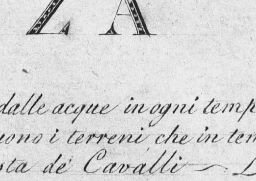 ZA
dalle acque in ogni temp
uono i terreni che in tem
sta de' Cavalli L